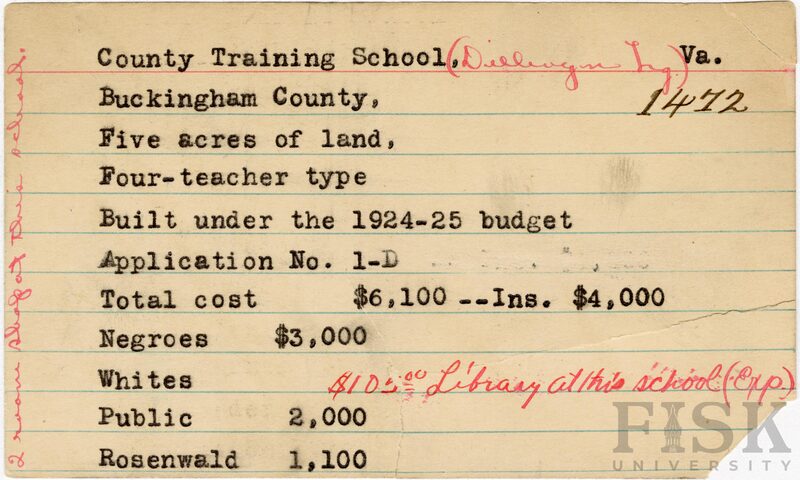 County Training School, (Dillwyn Trg) Va.
Buckingham County,
1472
Five acres of land,
Four-teacher type
Built under the 1924-25 budget
Application No. 1-D
Total cost $6,100 --Ins. $4,000
Negroes $3,000
Whites
$105.00 Library at this school (Exp)
Public 2,000
Rosenwald 1,100
2 room shop at this school.
FISK
UNIVERSITY